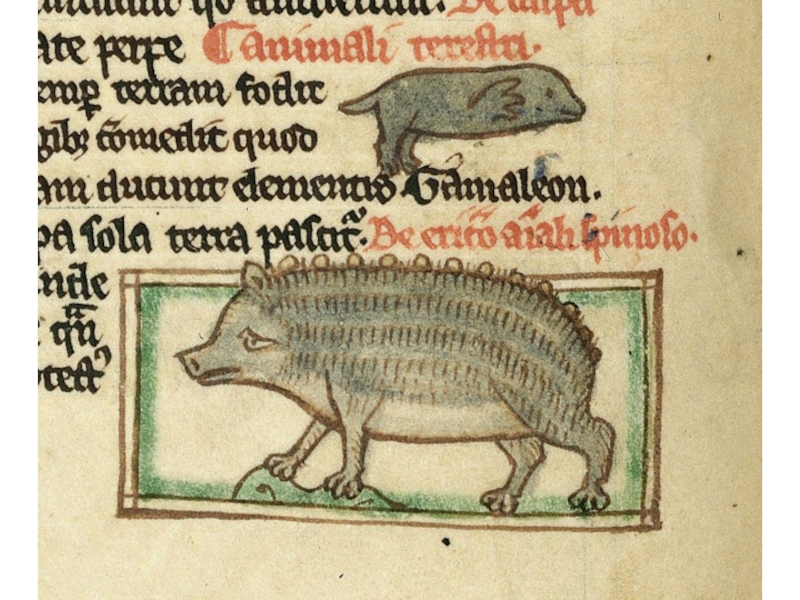 De talpa
ate perpe C animali terestri.
emp terram fodit
gibz comedit quod
am dicunt elementis Gamaleon.
pa sola terra pascit. De ericio aiali spinoso.
inde
qm
potest